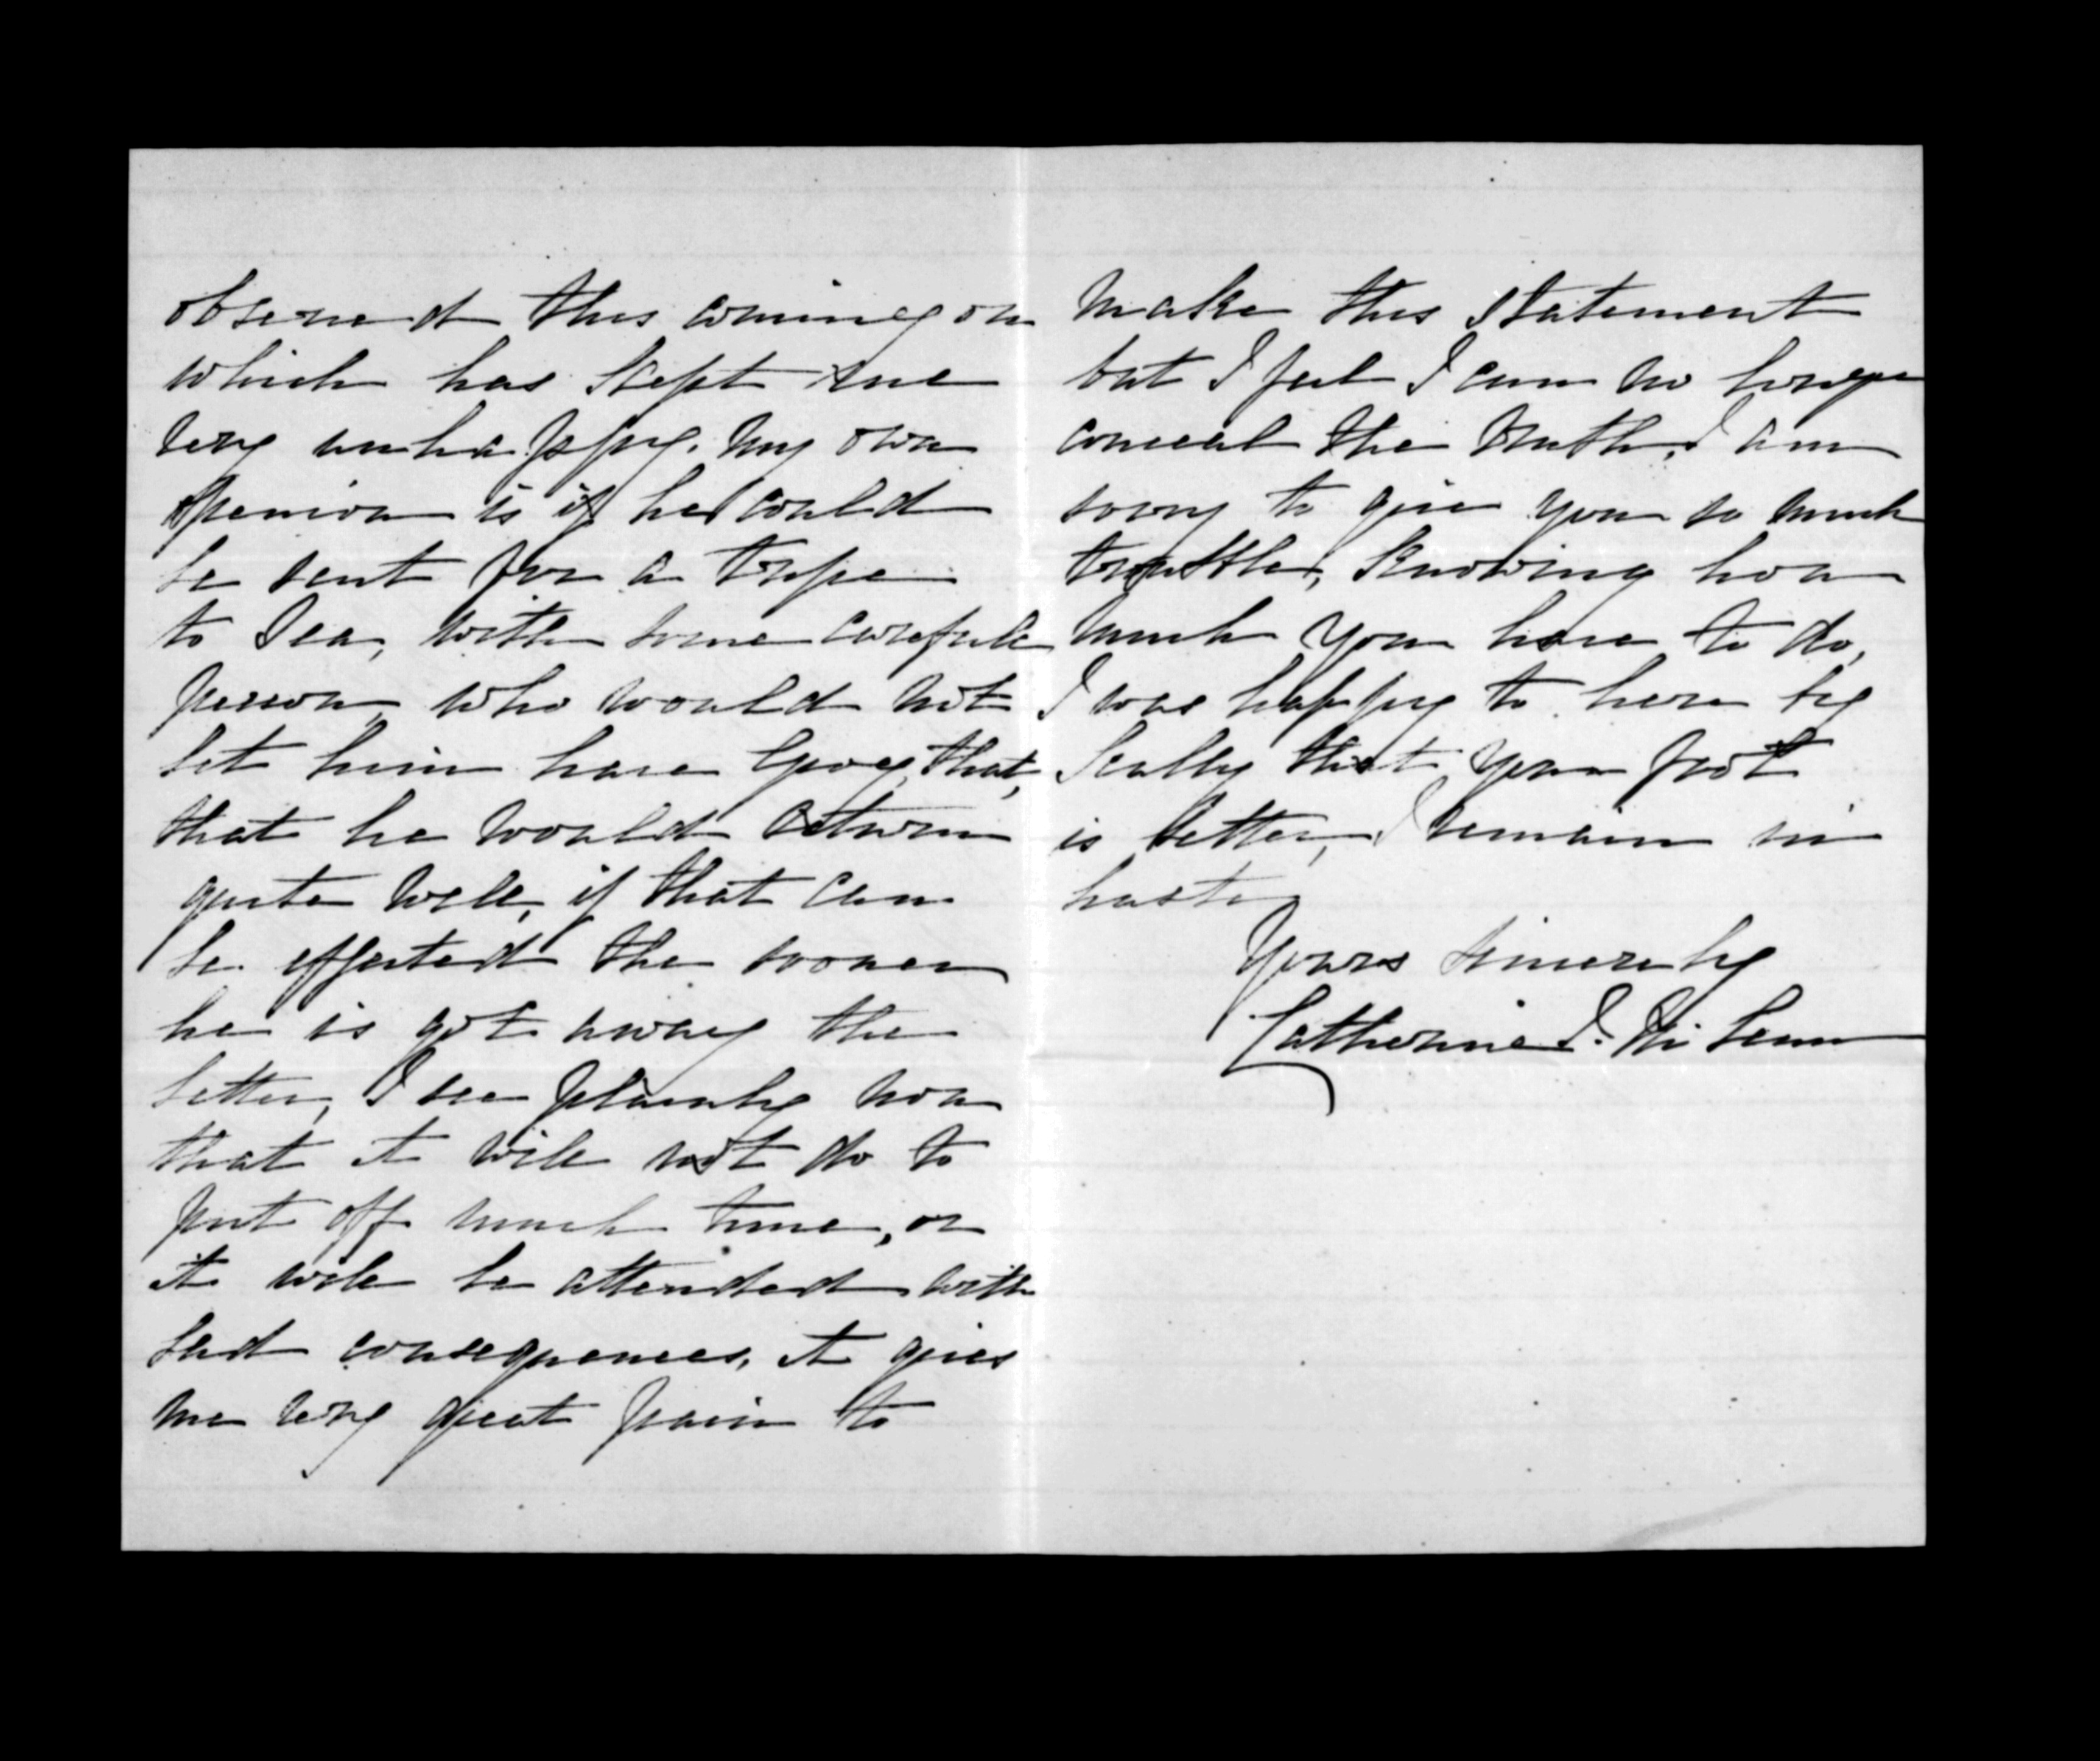 observed this coming on
which has kept me
very unhappy. my own
openion is if he could
be sent for a tripe
to Sea, with some carefull
person who would not
let him have Grog that,
that he would return
quite well, if that can
be effected the sooner
he is got away the
better, I see plainly now
that it will not do to
put off much time, or
it will be attended with
bad consequences, it gives
me very great pain to
make this statement
but I feel I can no longer
conceal the truth, I am
sorry to give you so much
trouble, knowing how
much you have to do,
I was happy to hear by
Scully that your foot
is better, I remain in
haste
Yours sincerely
Catherine I.